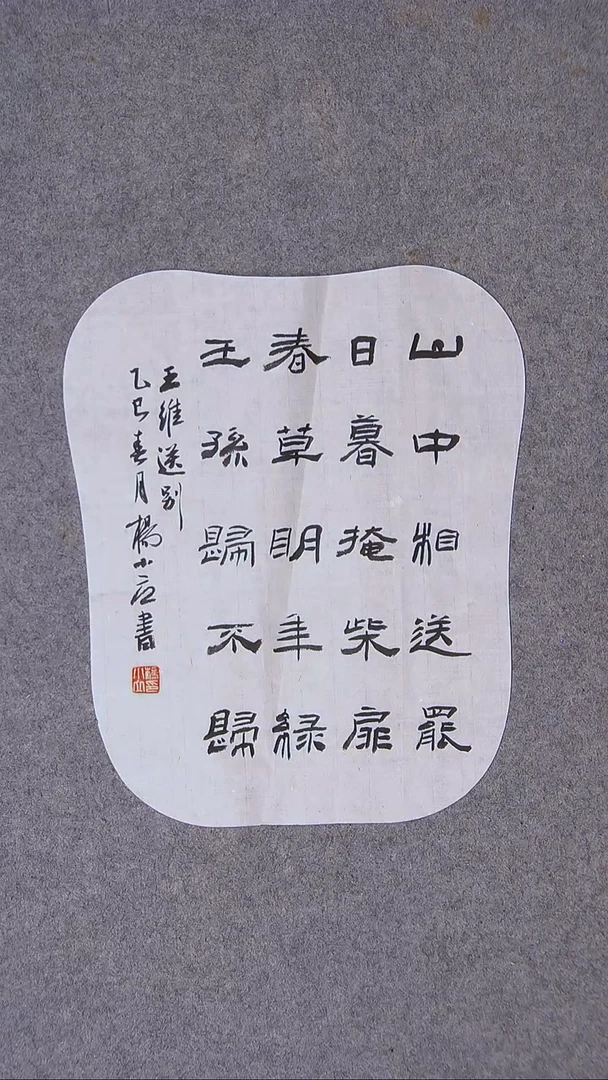 山中相送罷
日暮掩柴扉
春草眀年緑
王孫歸不歸
王維送别
乙巳春月楊小应書